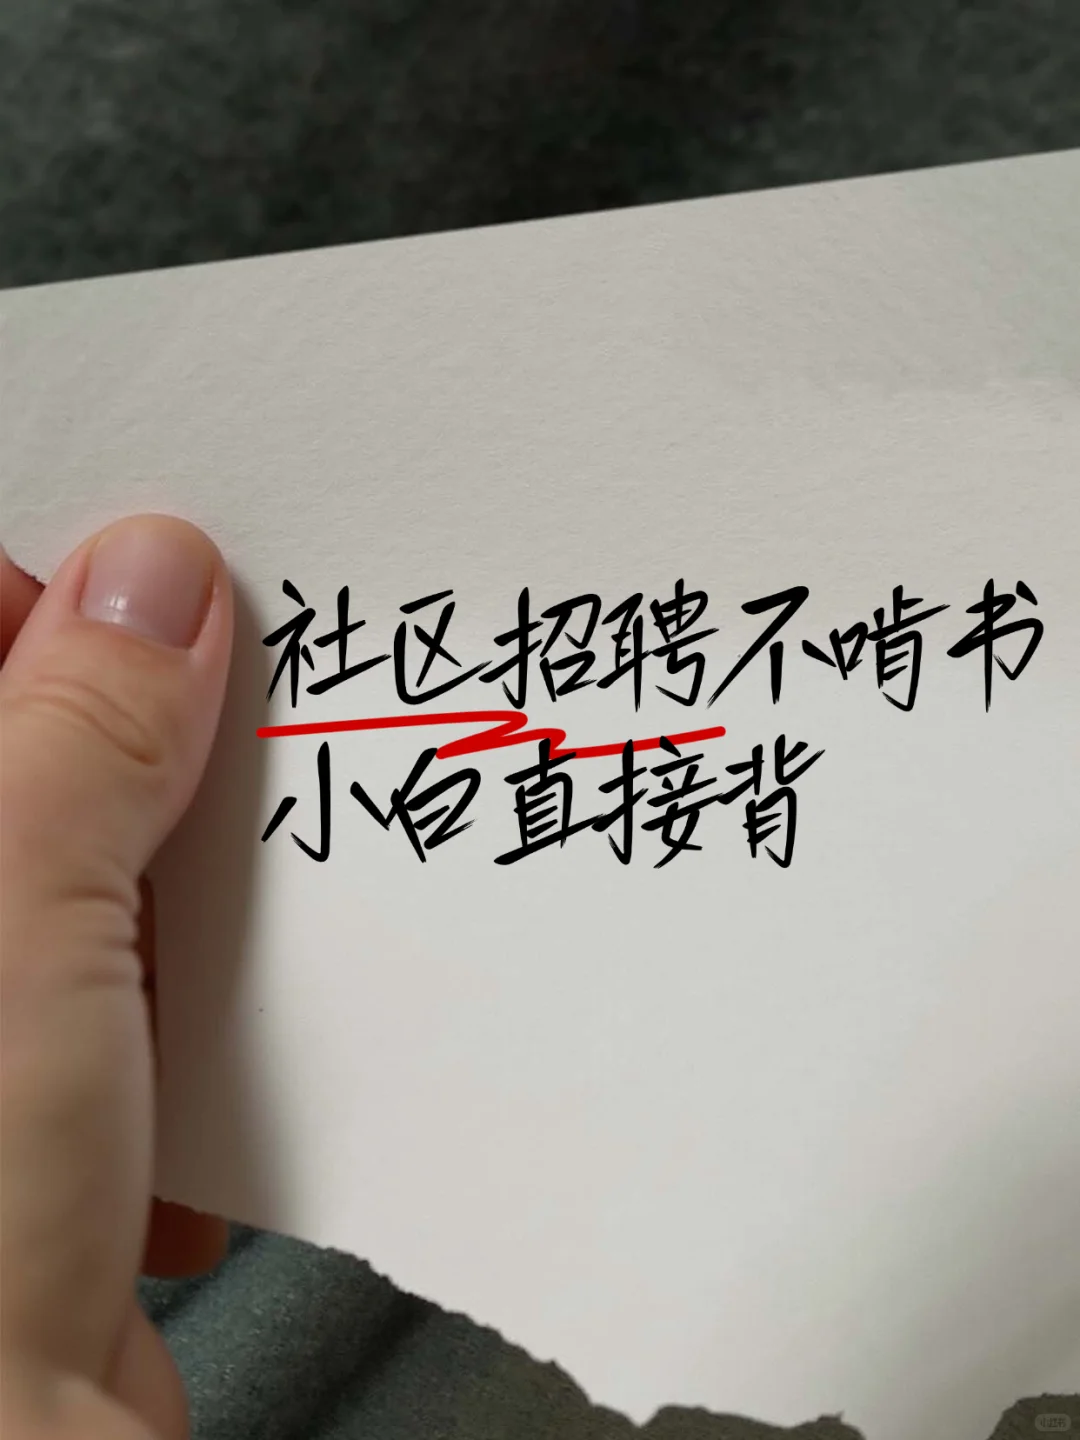 社区招聘不啃书
小白直接背
小红书